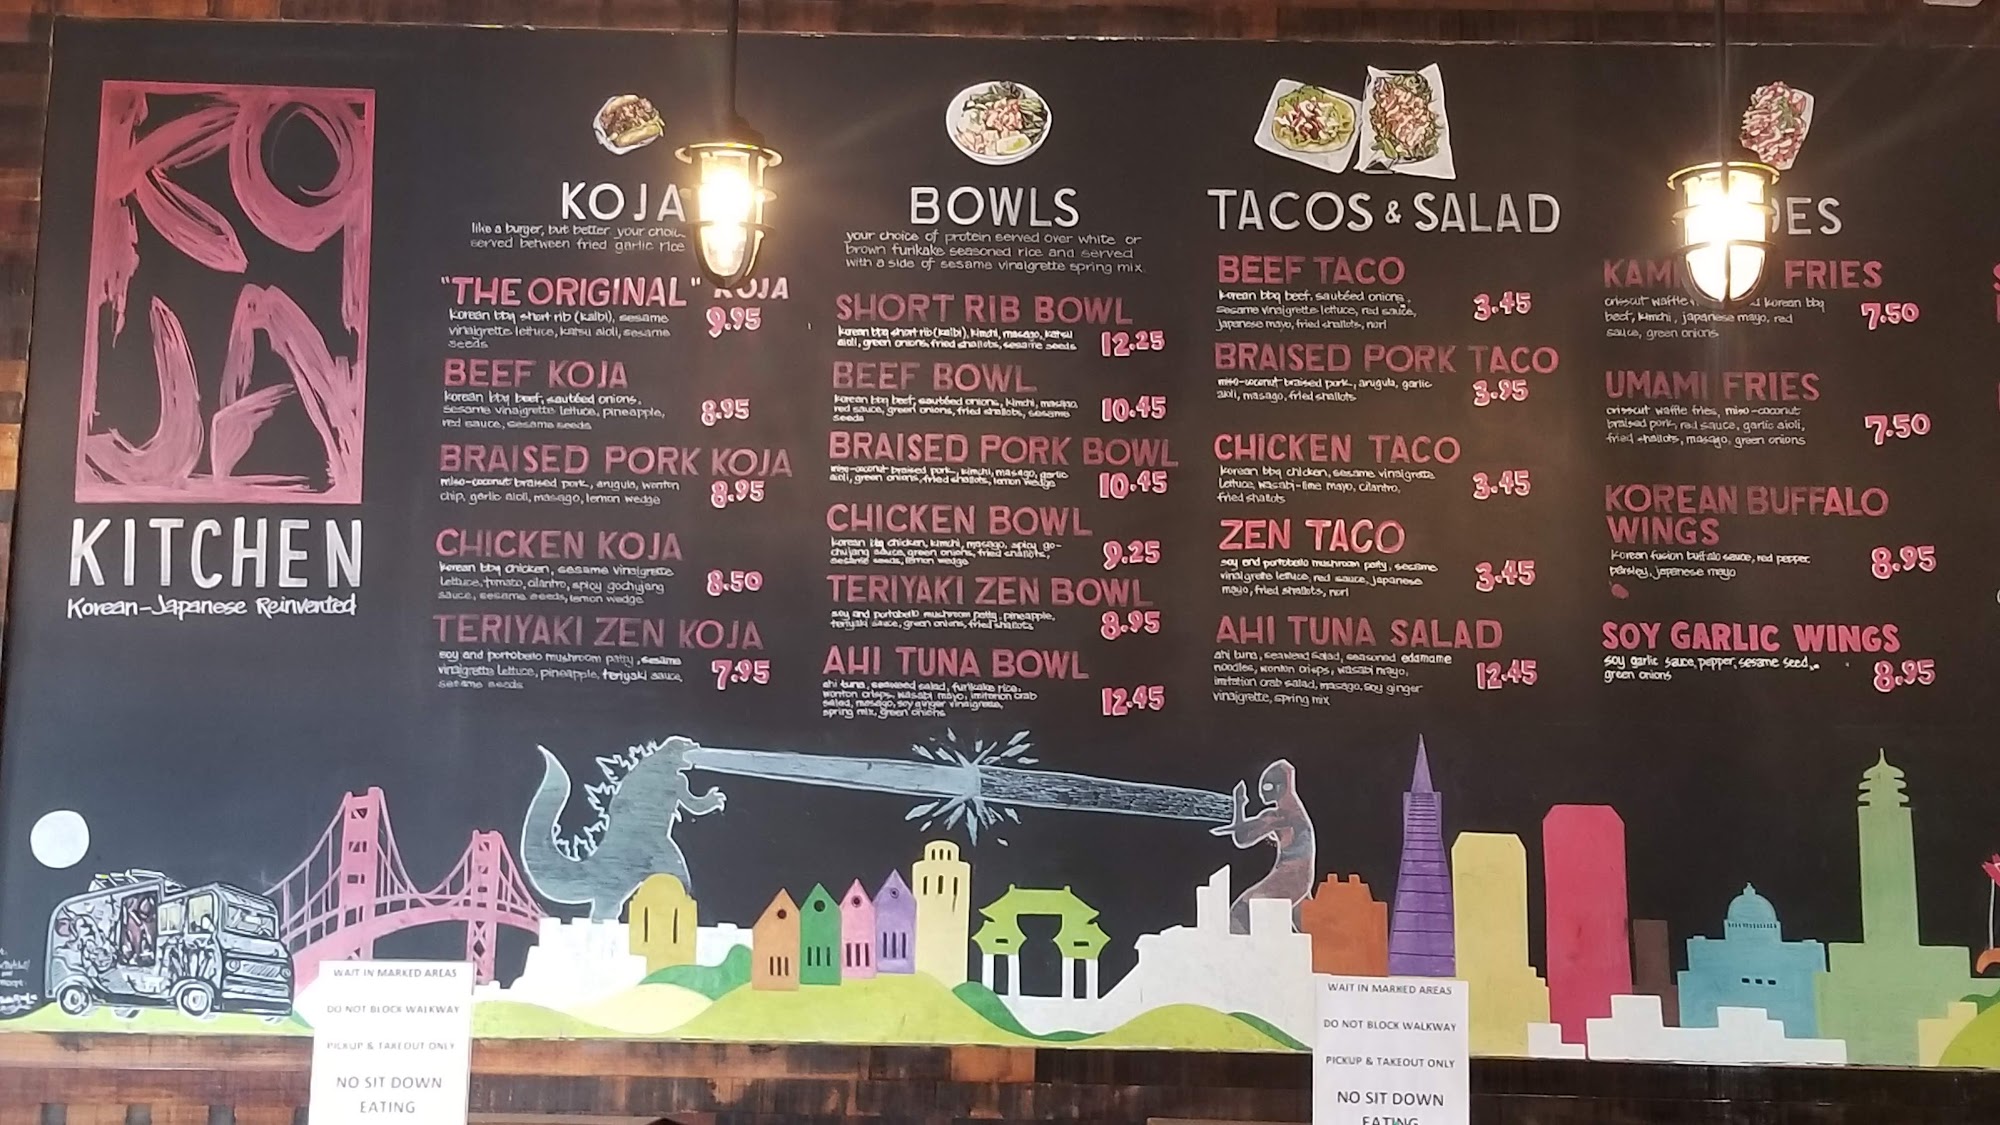 KOJA
KITCHEN
Korean-Japanese Reinvented
KOJA
like a burger, but better your
served between fried garlic rice
"THE ORIGINAL" KOJA
korean bbq short rib (kalbi), sesame
vinaigrette lettuce, katsu aioli, sesame
seeds
9.95
BEEF KOJA
korean bbq beef, sautéed onions,
sesame vinaigrette lettuce, pineapple,
red sauce, sesame seeds
8.95
BRAISED PORK KOJA
miso-coconut braised pork, arugula, wonton
chip, garlic aioli, masago, lemon wedge
8.95
CHICKEN KOJA
korean bbq chicken, sesame vinaigrette
lettuce, tomato, cilantro, spicy gochujang
sauce, sesame seeds, lemon wedge
8.50
TERIYAKI ZEN KOJA
soy and portobello mushroom patty, sesame
vinaigrette lettuce, pineapple, teriyaki sauce,
sesame seeds
7.95
BOWLS
your choice of protein served over white or
brown furikake seasoned rice and served
with a side of sesame vinaigrette spring mix.
SHORT RIB BOWL
korean bbq short rib (kalbi), kimchi, masago, katsu
aioli, green onions, fried shallots, sesame seeds
12.25
BEEF BOWL
korean bbq beef, sautéed onions, kimchi, masago,
red sauce, green onions, fried shallots, sesame
seeds
10.45
BRAISED PORK BOWL
miso-coconut braised pork, kimchi, masago, garlic
aioli, green onions, fried shallots, lemon wedge
10.45
CHICKEN BOWL
korean bbq chicken, kimchi, masago, spicy go-
chujang sauce, green onions, fried shallots,
sesame seeds, lemon wedge
9.25
TERIYAKI ZEN BOWL
soy and portobello mushroom patty, pineapple,
teriyaki sauce, green onions, fried shallots
8.95
AHI TUNA BOWL
ahi tuna, seaweed salad, furikake rice,
wonton crisps, wasabi mayo, imitation crab
salad, masago, soy ginger vinaigrette,
spring mix, green onions
12.45
TACOS & SALAD
BEEF TACO
korean bbq beef, sautéed onions,
sesame vinaigrette lettuce, red sauce,
japanese mayo, fried shallots, nori
3.45
BRAISED PORK TACO
miso-coconut braised pork, arugula, garlic
aioli, masago, fried shallots
3.95
CHICKEN TACO
korean bbq chicken, sesame vinaigrette
lettuce, wasabi-lime mayo, cilantro,
fried shallots
3.45
ZEN TACO
soy and portobello mushroom patty, sesame
vinaigrette lettuce, red sauce, japanese
mayo, fried shallots, nori
3.45
AHI TUNA SALAD
ahi tuna, seaweed salad, seasoned edamame
noodles, wonton crisps, wasabi mayo,
imitation crab salad, masago, soy ginger
vinaigrette, spring mix
12.45
FRIES
crisscut waffle korean bbq
beef, kimchi, japanese mayo, red
sauce, green onions
7.50
UMAMI FRIES
crisscut waffle fries, miso-coconut
braised pork, red sauce, garlic aioli,
fried shallots, masago, green onions
7.50
KOREAN BUFFALO
WINGS
korean fusion buffalo sauce, red pepper,
parsley, japanese mayo
8.95
SOY GARLIC WINGS
soy garlic sauce, pepper, sesame seed,
green onions
8.95
WAIT IN MARKED AREAS
DO NOT BLOCK WALKWAY
PICKUP & TAKEOUT ONLY
NO SIT DOWN
EATING
WAIT IN MARKED AREAS
DO NOT BLOCK WALKWAY
PICKUP & TAKEOUT ONLY
NO SIT DOWN
EATING